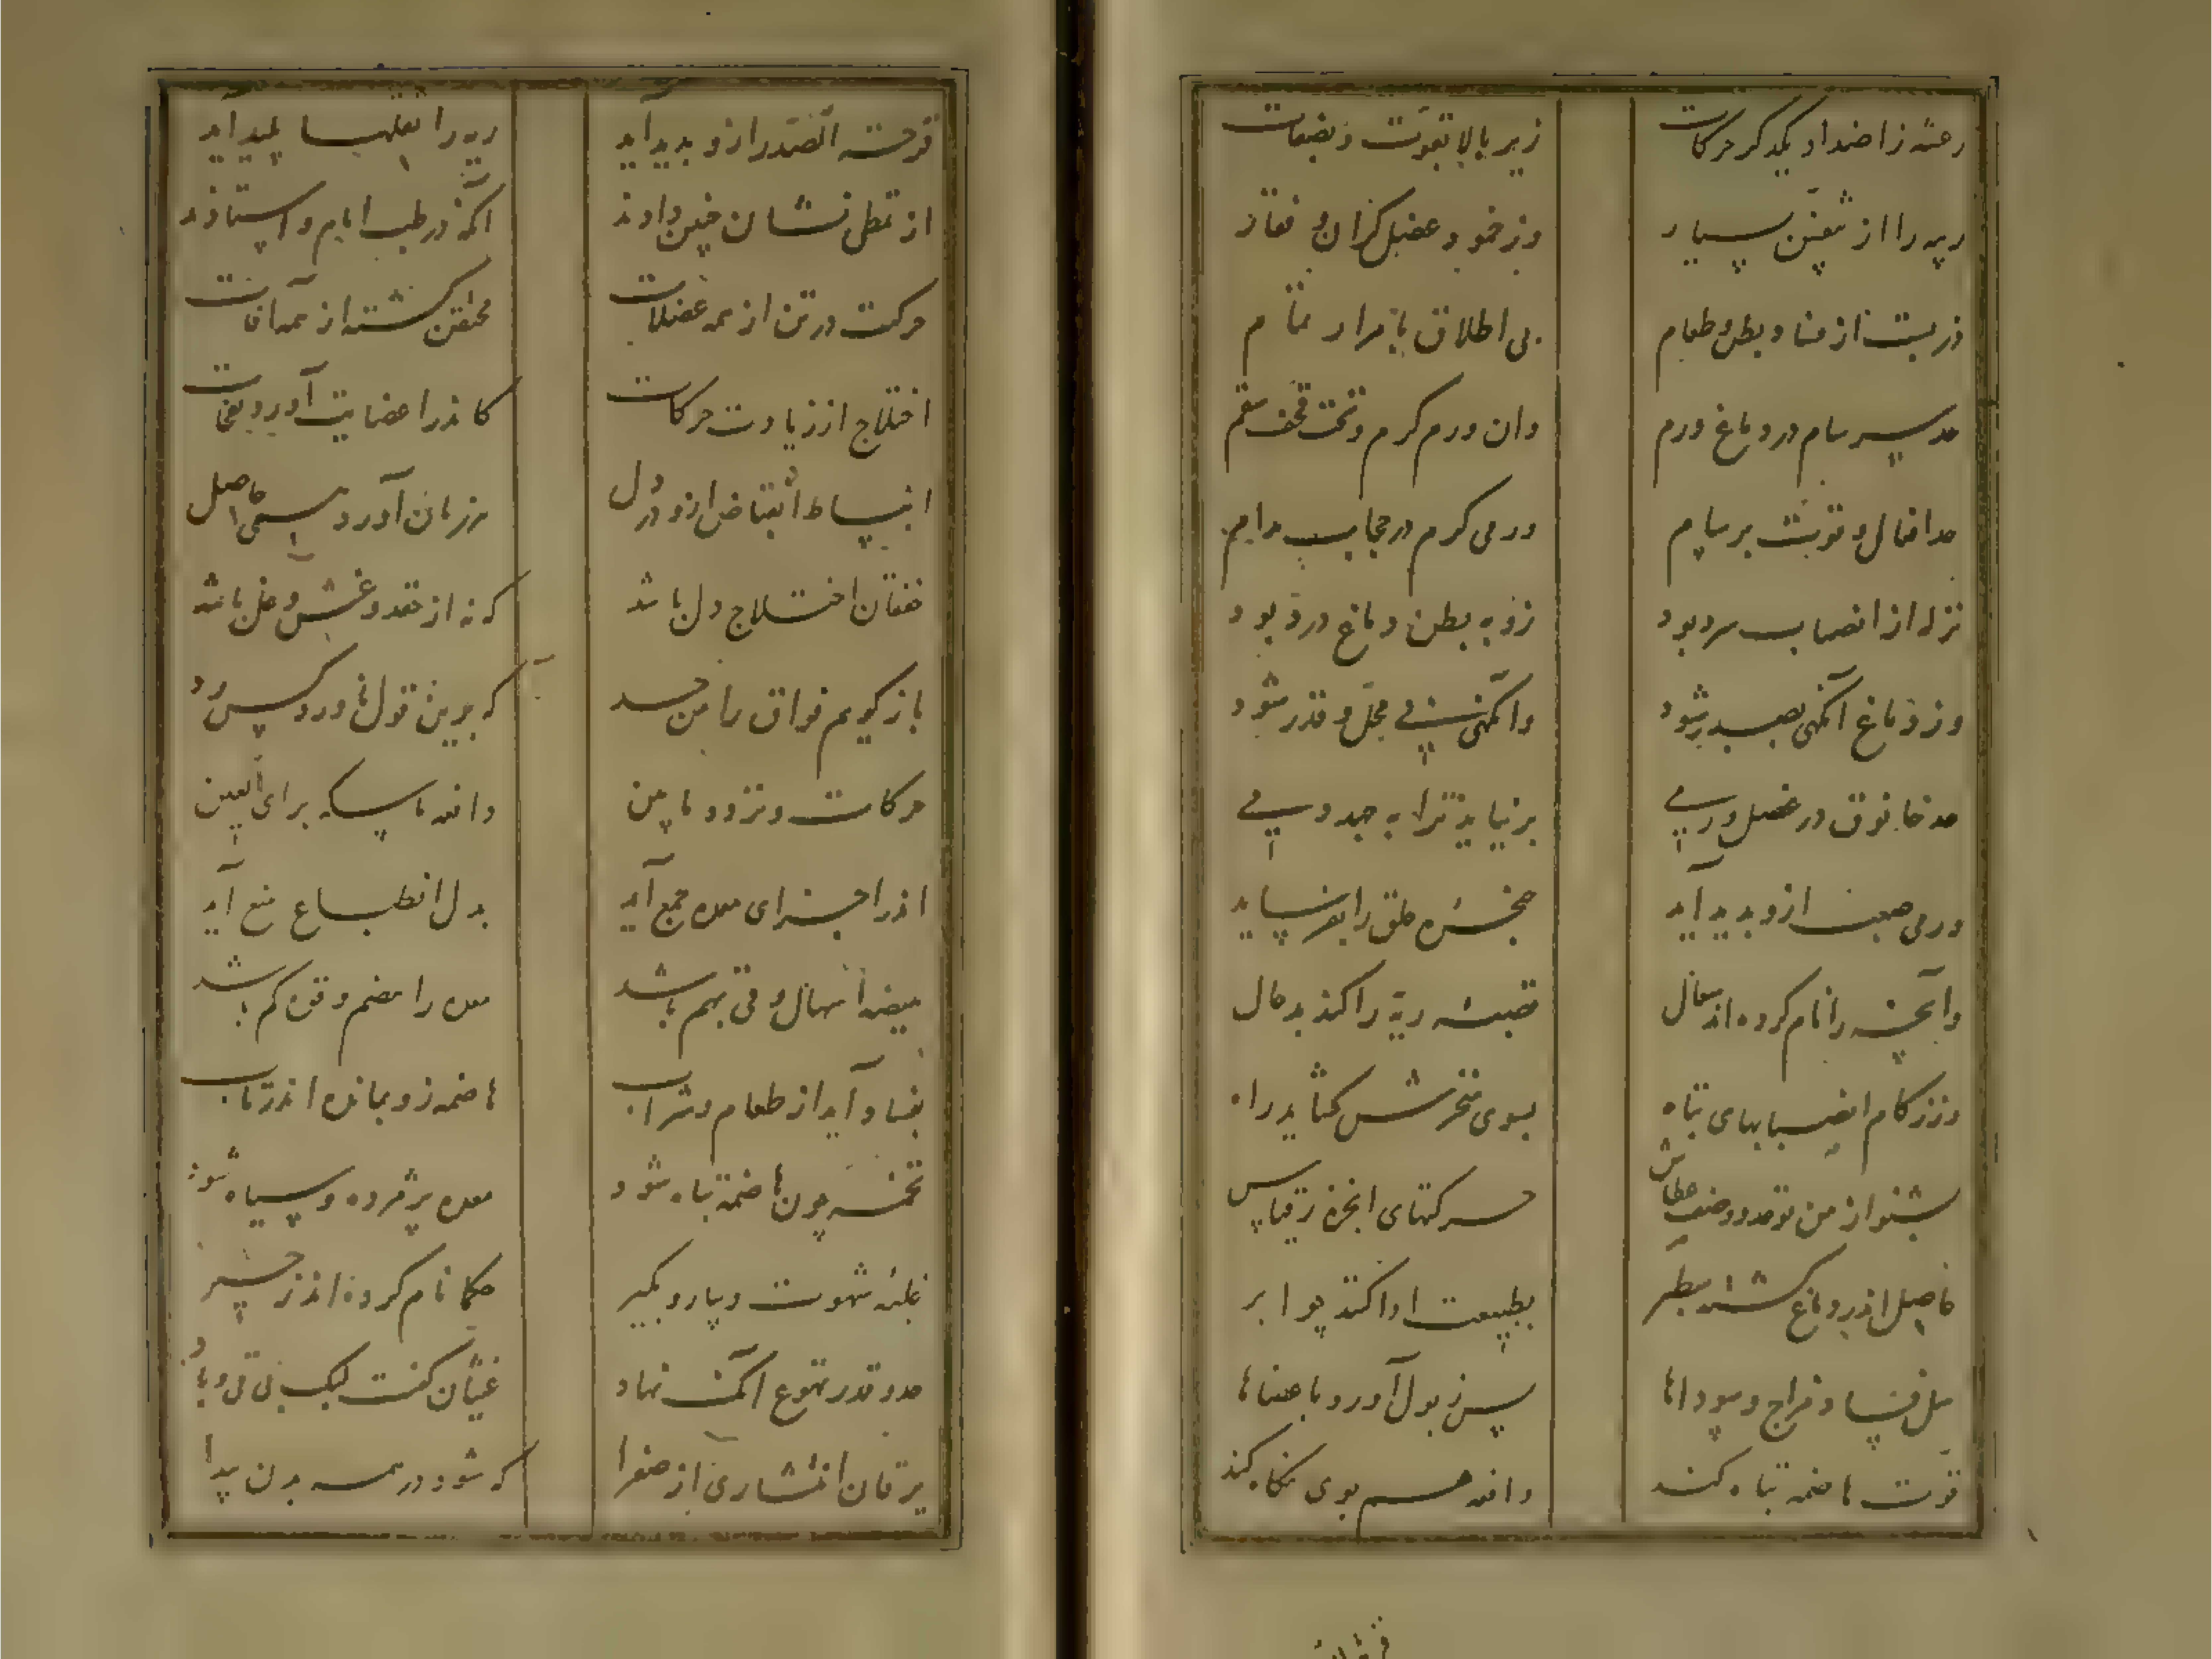 رعشه ز اضداد یکدگر حرکات
زیر و بالا بقوت و بضعات
ریه را از تعفن بسیار
وز خمود عضل کران و فقار
ذربست از فساد بطن و طعام
بی اطلاق با مرار تمام
حد سرسام در دماغ ورم
وان ورم کرم و تحت قحف سقم
حد افعال و قوتش برسام
ورمی کرم در حجاب مدام
نزله از انصباب سرد بود
زو به بطن دماغ درد بود
وز دماغ آنگهی بصدر شود
وانگهی فی محل و قدر شود
حد خانوق در عضل ورمی
بر نیاید ترا به جهد دمی
ورمی صعب ازو پدید آید
حنجره حلق را بفرساید
وانچه را نام کرده اند سعال
قصبه ریه را کند بد حال
وز زکام انصبابهای تباه
بسوی منخرش کشاید راه
بشنو از من تو حدود عطاس
حرکتهای ابخره ز قیاس
حاصل اندر دماغ کشته سطبر
بطبیعت ادا کند چو ابر
سل فساد مزاج و سودا ها
پس ز بول آورد باعضا ها
قوت هاضمه تباه کند
وانکه جسم بوی نکاه کند
قرحة الصدر ازو پدید آید
ریه را ثقلها پلید آید
از تمطی نشان چنین دادند
آنکه در طب امام و استادند
حرکت در تن از همه عضلات
محتقن کشته از همه آفات
اختلاج از زیادت حرکات
کاندر اعضایت آورد نفخات
انبساط انقباض ازو در دل
هر زمان آورد همی حاصل
خفقان اختلاج دل باشد
که نه از حقد و غش و غل باشد
باز کویم فواق را من حد
که برین قول ها ورد کس رد
حرکات و تزود ما بین
دافعه ماسکه برای العین
اندر اجزای معده جمع آید
بدل انطباع منع آید
هیضه اسهال و قی بهم باشد
معده را هضم و قوه کم باشد
بفساد آید از طعام و شراب
هاضمه زو بمانده اندر تاب
تخمه چون هاضمه تباه شود
معده پژمرده و سیاه شود
غلبه شهوت و بیار و بگیر
حکما نام کرده اند زحیر
حد و قدر تهوع آنکه نهاد
غثیان کفت لیک بی قی و باد
یرقان انتشاری از صفرا
که شود در همه بدن پیدا